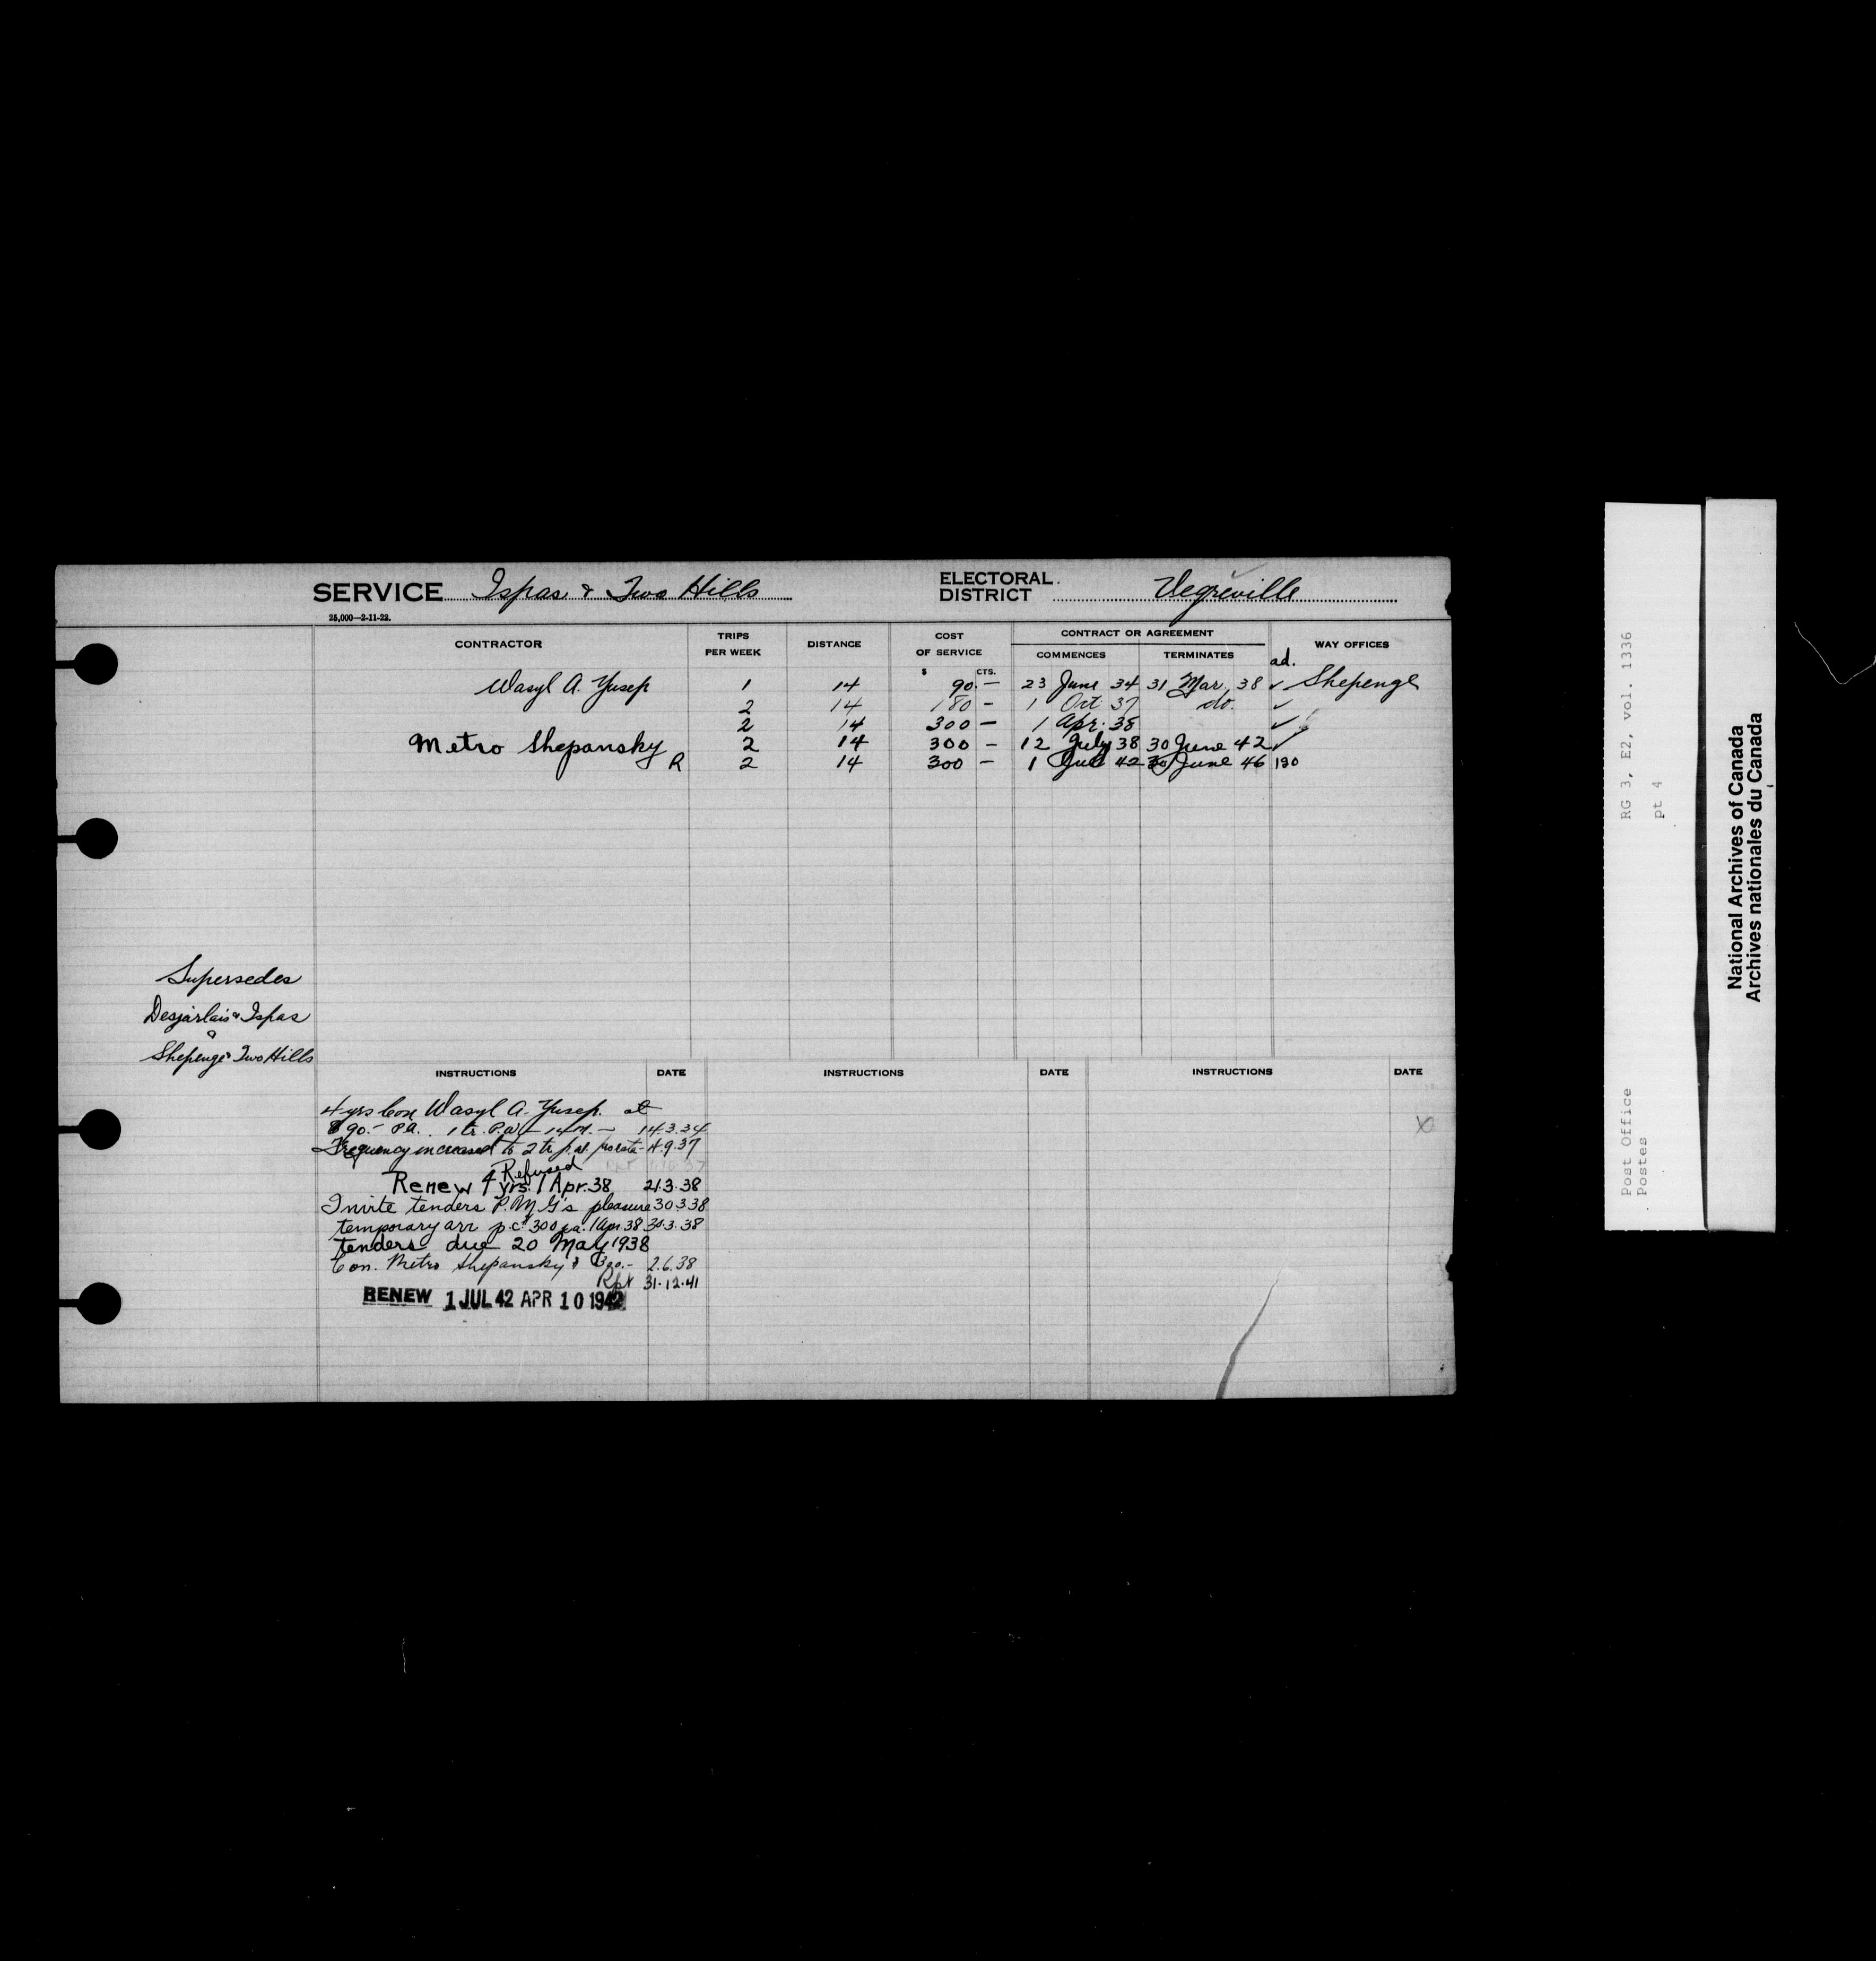 SERVICE Ispas & Two Hills ELECTORAL DISTRICT Vegreville
25,000—2-11-22.
CONTRACTOR TRIPS PER WEEK DISTANCE COST OF SERVICE CONTRACT OR AGREEMENT COMMENCES TERMINATES WAY OFFICES
$ CTS. ad.
Wasyl A. Yusep 1 14 90.— 23 June 34 31 Mar. 38 ✓ Shepenge
2 14 180 — 1 Oct 37 do. ✓
2 14 300 — 1 Apr. 38 ✓
Metro Shepansky 2 14 300 — 12 July 38 30 June 42 ✓
R 2 14 300 — 1 Jul 42 30 June 46 130
Supersedes
Desjarlais & Ispas
&
Shepenge & Two Hills
INSTRUCTIONS DATE INSTRUCTIONS DATE INSTRUCTIONS DATE
4 yrs Con Wasyl A. Yusep. at
$90.— P.A. 1 tr. P.W. — 14 M. — 14.3.34
Frequency increased to 2 tr p.w. prorata 4.9.37
Refused
Renew 4 yrs. 1 Apr. 38 21.3.38
Invite tenders P.M.G's pleasure 30.3.38
temporary arr p.c. 300 p.a. 1 Apr 38 30.3.38
tenders due 20 May 1938
Con. Metro Shepansky 300.— 2.6.38
Rpt 31.12.41
RENEW 1 JUL 42 APR 10 1942
X
RG 3, E2, vol. 1336
pt 4
Post Office
Postes
National Archives of Canada
Archives nationales du Canada